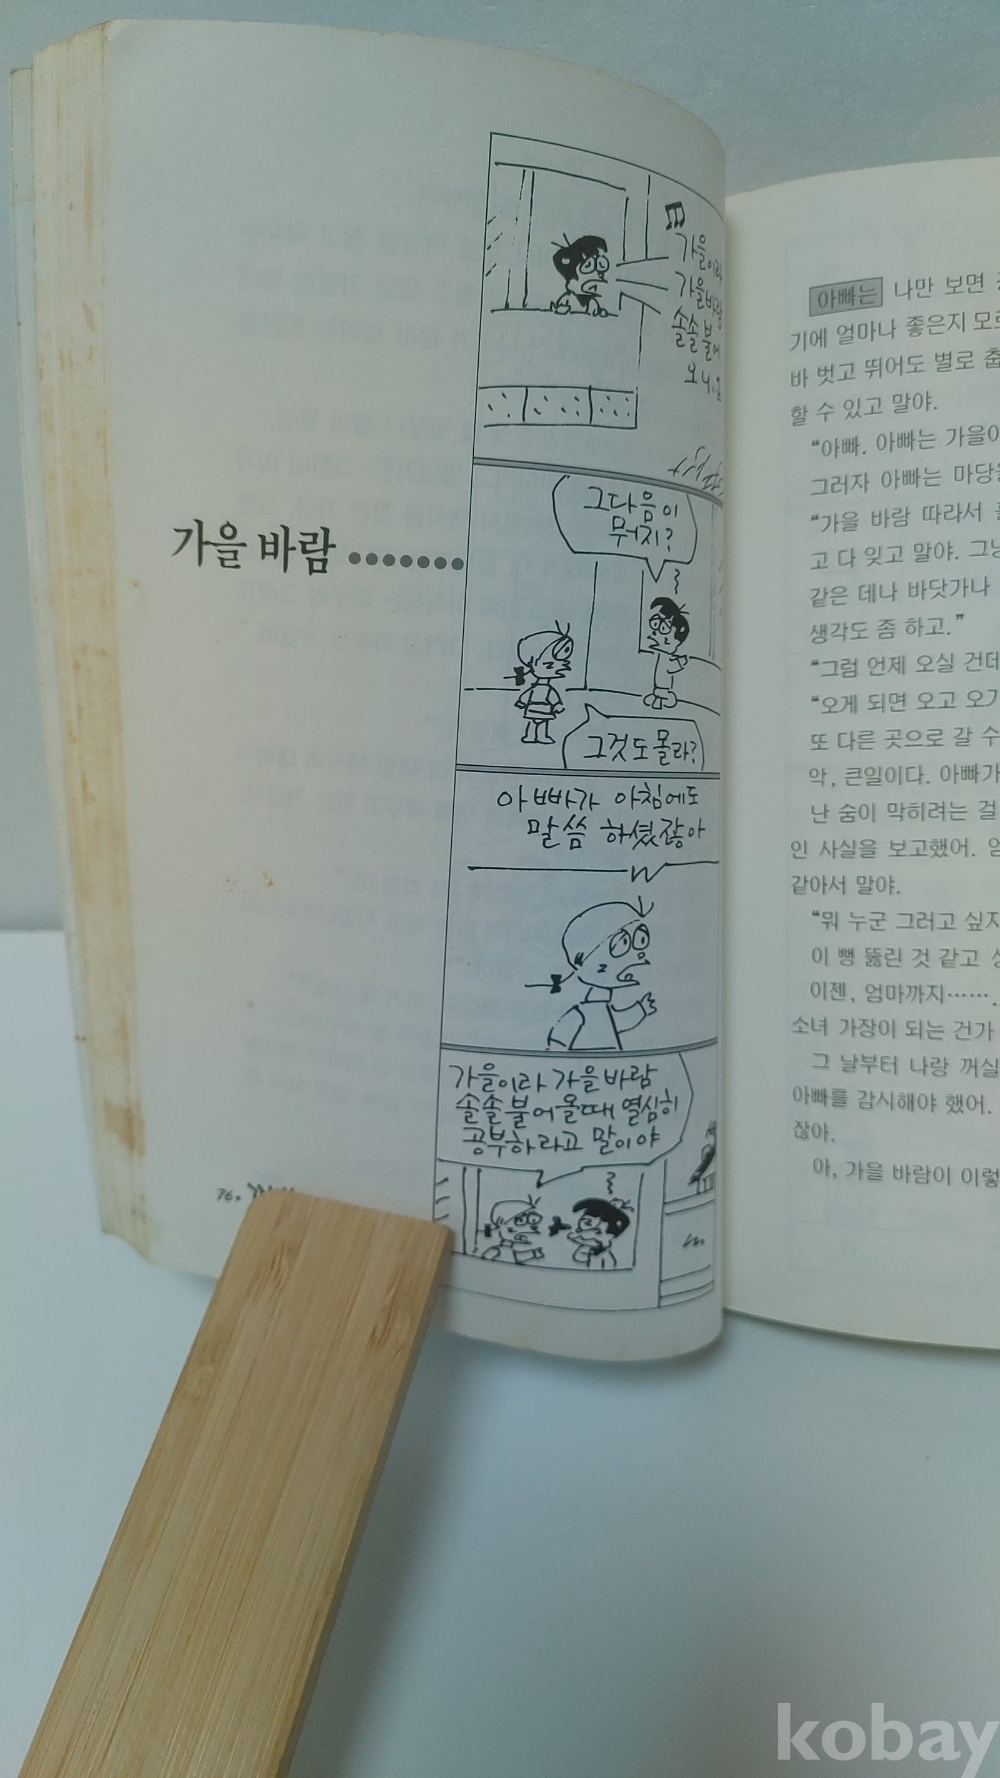 가을 바람
가을이라
가을바람
솔솔 불어
오니까
그다음이
뭐지?
그것도 몰라?
아빠가 아침에도
말씀 하셨잖아
가을이라 가을바람
솔솔 불어 올때 열심히
공부하라고 말이야
76.
아빠는 나만 보면
기에 얼마나 좋은지
바 벗고 뛰어도 별로
할 수 있고 말야.
“아빠. 아빠는
그러자 아빠는
“가을 바람 따라서
고 다 잊고 말야.
같은 데나 바닷가나
생각도 좀 하고.”
“그럼 언제 오실
“오게 되면 오고
또 다른 곳으로 갈 수
악, 큰일이다. 아빠가
난 숨이 막히려는 걸
인 사실을 보고했어.
같아서 말야.
“뭐 누군 그러고
이 뻥 뚫린 것 같고
이젠, 엄마까지…….
소녀 가장이 되는 건가
그 날부터 나랑
아빠를 감시해야 했어.
잖아.
아, 가을 바람이
kobay